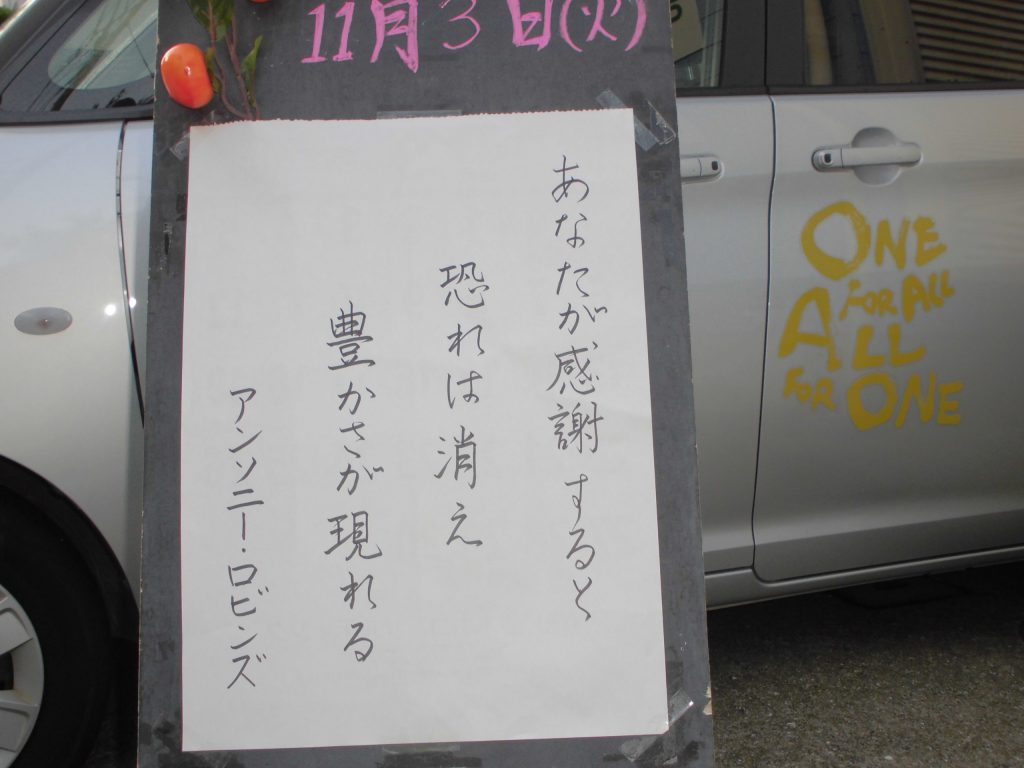 11月3日(火)
あなたが感謝すると
恐れは消え
豊かさが現れる
アンソニー・ロビンズ
ONE
FOR ALL
ALL
FOR ONE